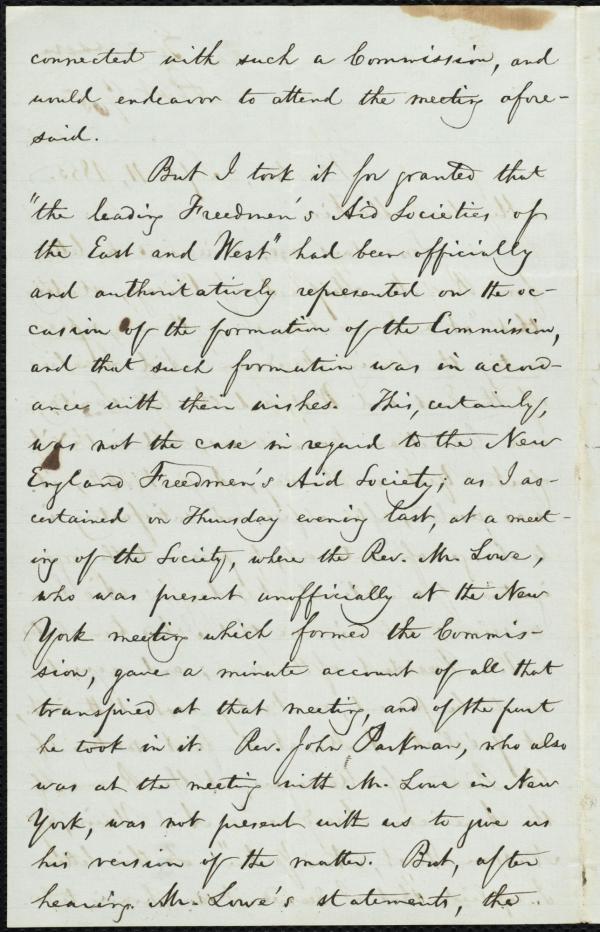 connected with such a Commission, and
would endeavor to attend the meeting afore-
said.
But I took it for granted that
"the leading Freedmen's Aid Societies of
the East and West" had been officially
and authoritatively represented on the oc-
casion of the formation of the Commission,
and that such formation was in accord-
ance with their wishes. This, certainly,
was not the case in regard to the New
England Freedmen's Aid Society; as I as-
certained on Thursday evening last, at a meet-
ing of the Society, where the Rev. Mr. Lowe,
who was present unofficially at the New
York meeting which formed the Commis-
sion, gave a minute account of all that
transpired at that meeting, and of the part
he took in it. Rev. John Parkman, who also
was at the meeting with Mr. Lowe in New
York, was not present with us to give us
his version of the matter. But, after
hearing Mr. Lowe's statements, the